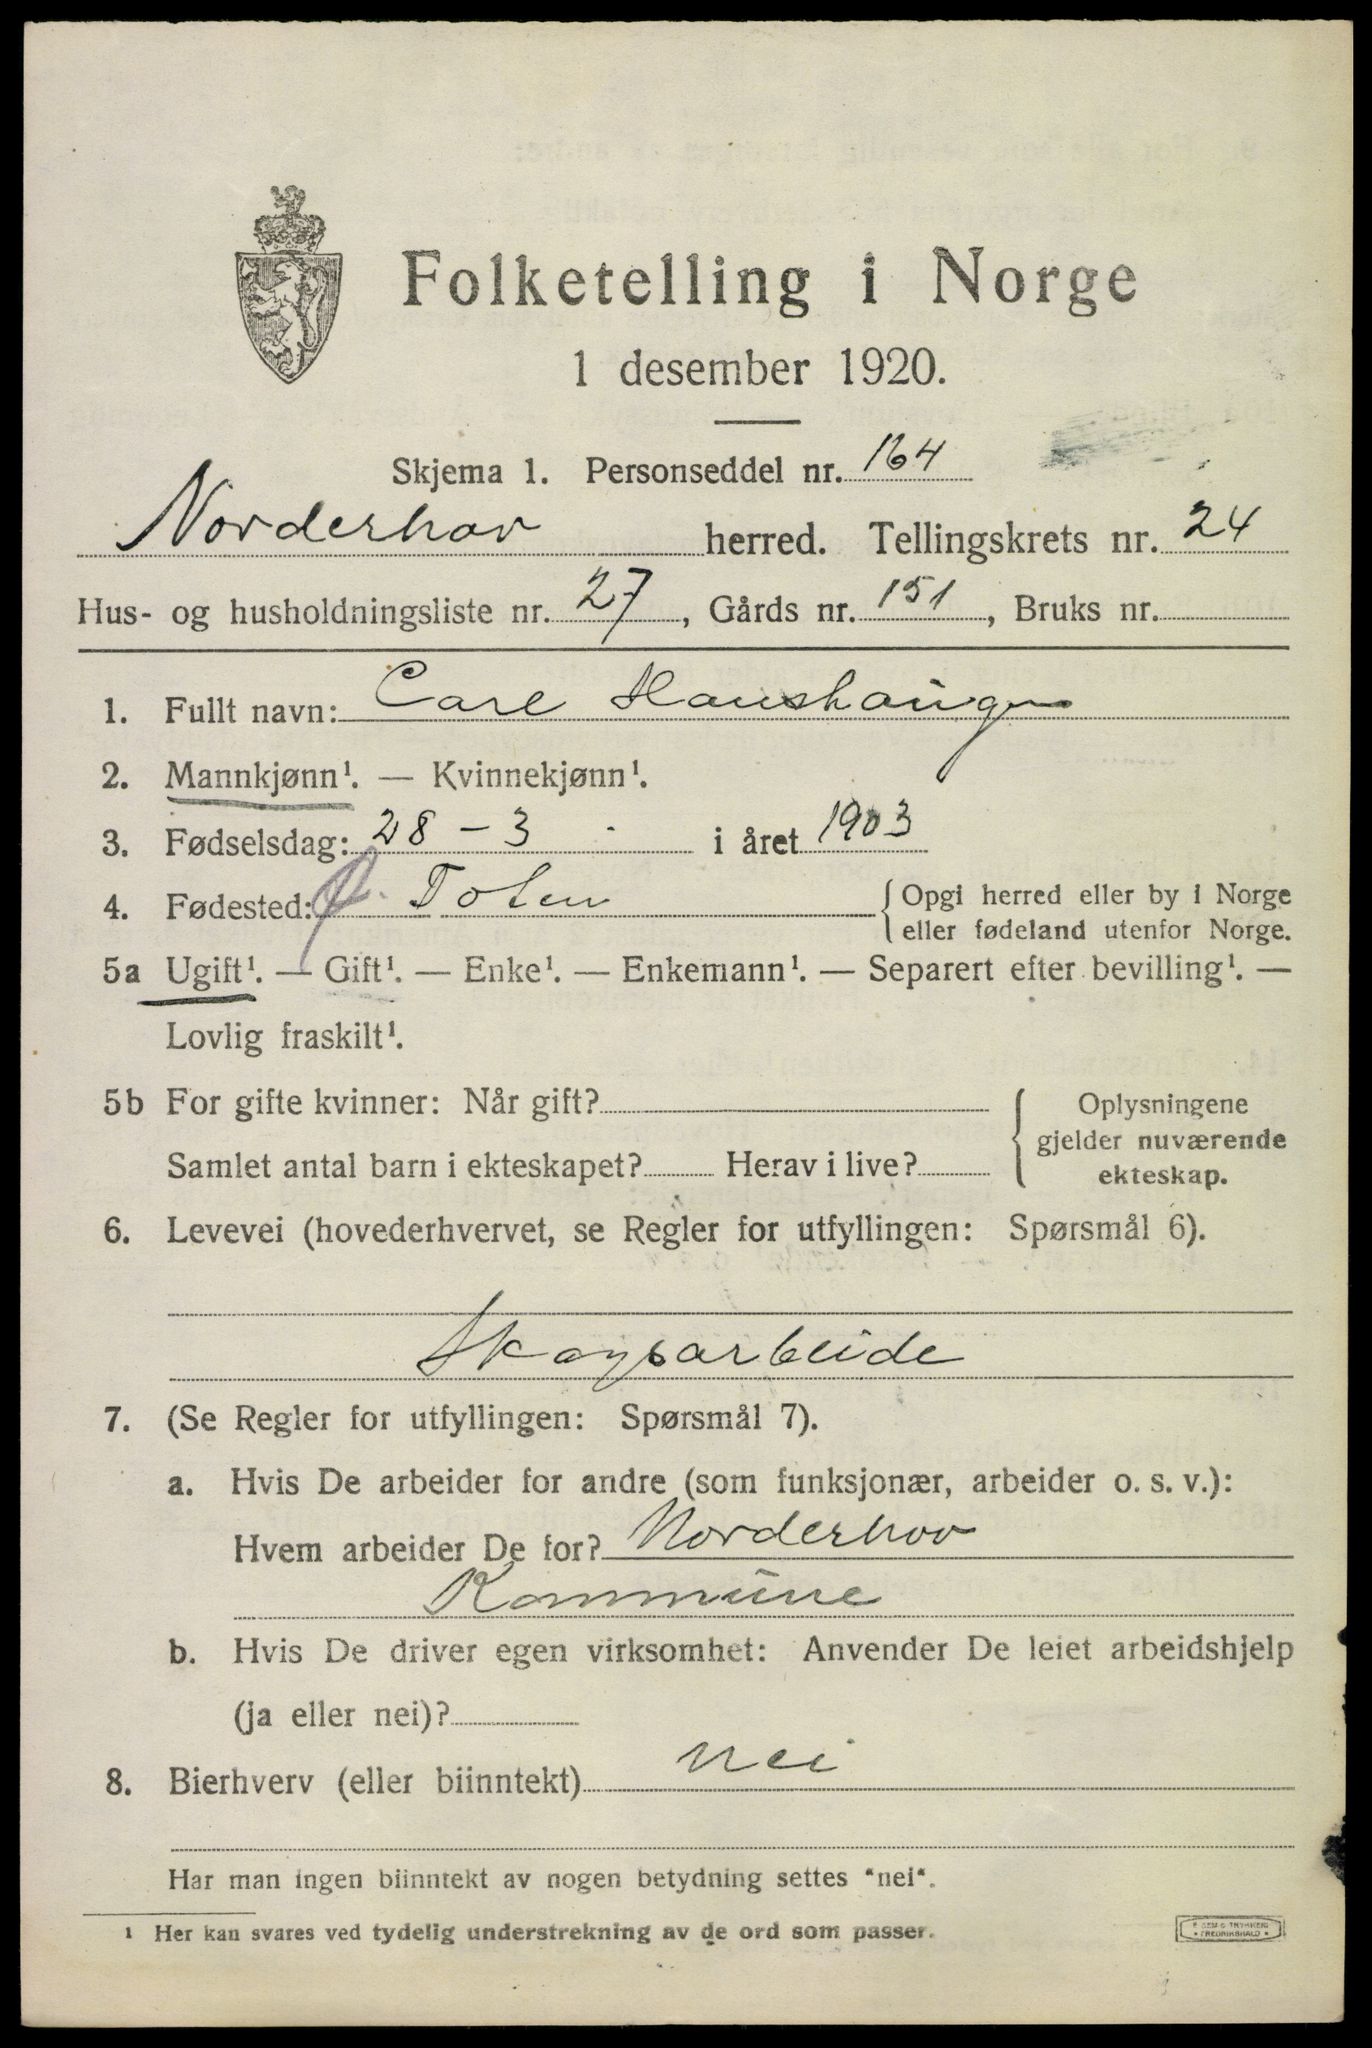 Folketelling i Norge
1 desember 1920.
Skjema 1. Personseddel nr. 164
Norderhov herred. Tellingskrets nr. 24
Hus- og husholdningsliste nr. 27, Gårds nr. 151, Bruks nr.
1. Fullt navn: Carl Haushaugen
2. Mannkjønn¹. — Kvinnekjønn¹.
3. Fødselsdag: 28 - 3 i året 1903
4. Fødested: Ø. Toten { Opgi herred eller by i Norge
eller fødeland utenfor Norge.
5a Ugift¹. — Gift¹. — Enke¹. — Enkemann¹. — Separert efter bevilling¹. —
Lovlig fraskilt¹.
5b For gifte kvinner: Når gift? { Oplysningene
gjelder nuværende
Samlet antal barn i ekteskapet? Herav i live? ekteskap.
6. Levevei (hovederhvervet, se Regler for utfyllingen: Spørsmål 6).
Skogsarbeide
7. (Se Regler for utfyllingen: Spørsmål 7).
a. Hvis De arbeider for andre (som funksjonær, arbeider o. s. v.):
Hvem arbeider De for? Norderhov
Kommune
b. Hvis De driver egen virksomhet: Anvender De leiet arbeidshjelp
(ja eller nei)?
8. Bierhverv (eller biinntekt) nei
Har man ingen biinntekt av nogen betydning settes "nei".
¹ Her kan svares ved tydelig understrekning av de ord som passer.